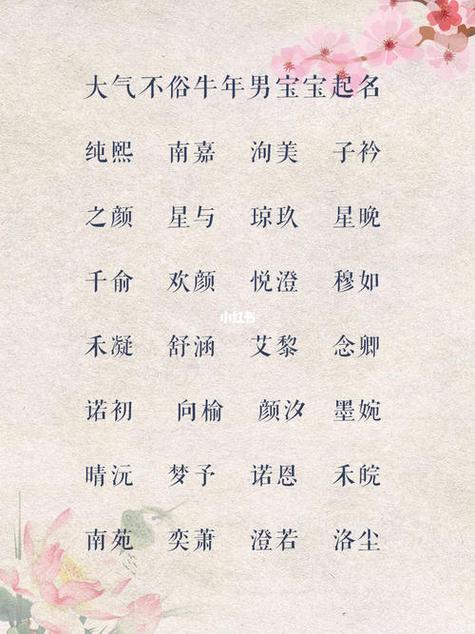 大气不俗牛年男宝宝起名
纯熙 南嘉 洵美 子衿
之颜 星与 琼玖 星晚
千俞 欢颜 悦澄 穆如
小红书
禾凝 舒涵 艾黎 念卿
诺初 向榆 颜汐 墨婉
晴沅 梦予 诺恩 禾皖
南苑 奕萧 澄若 洛尘